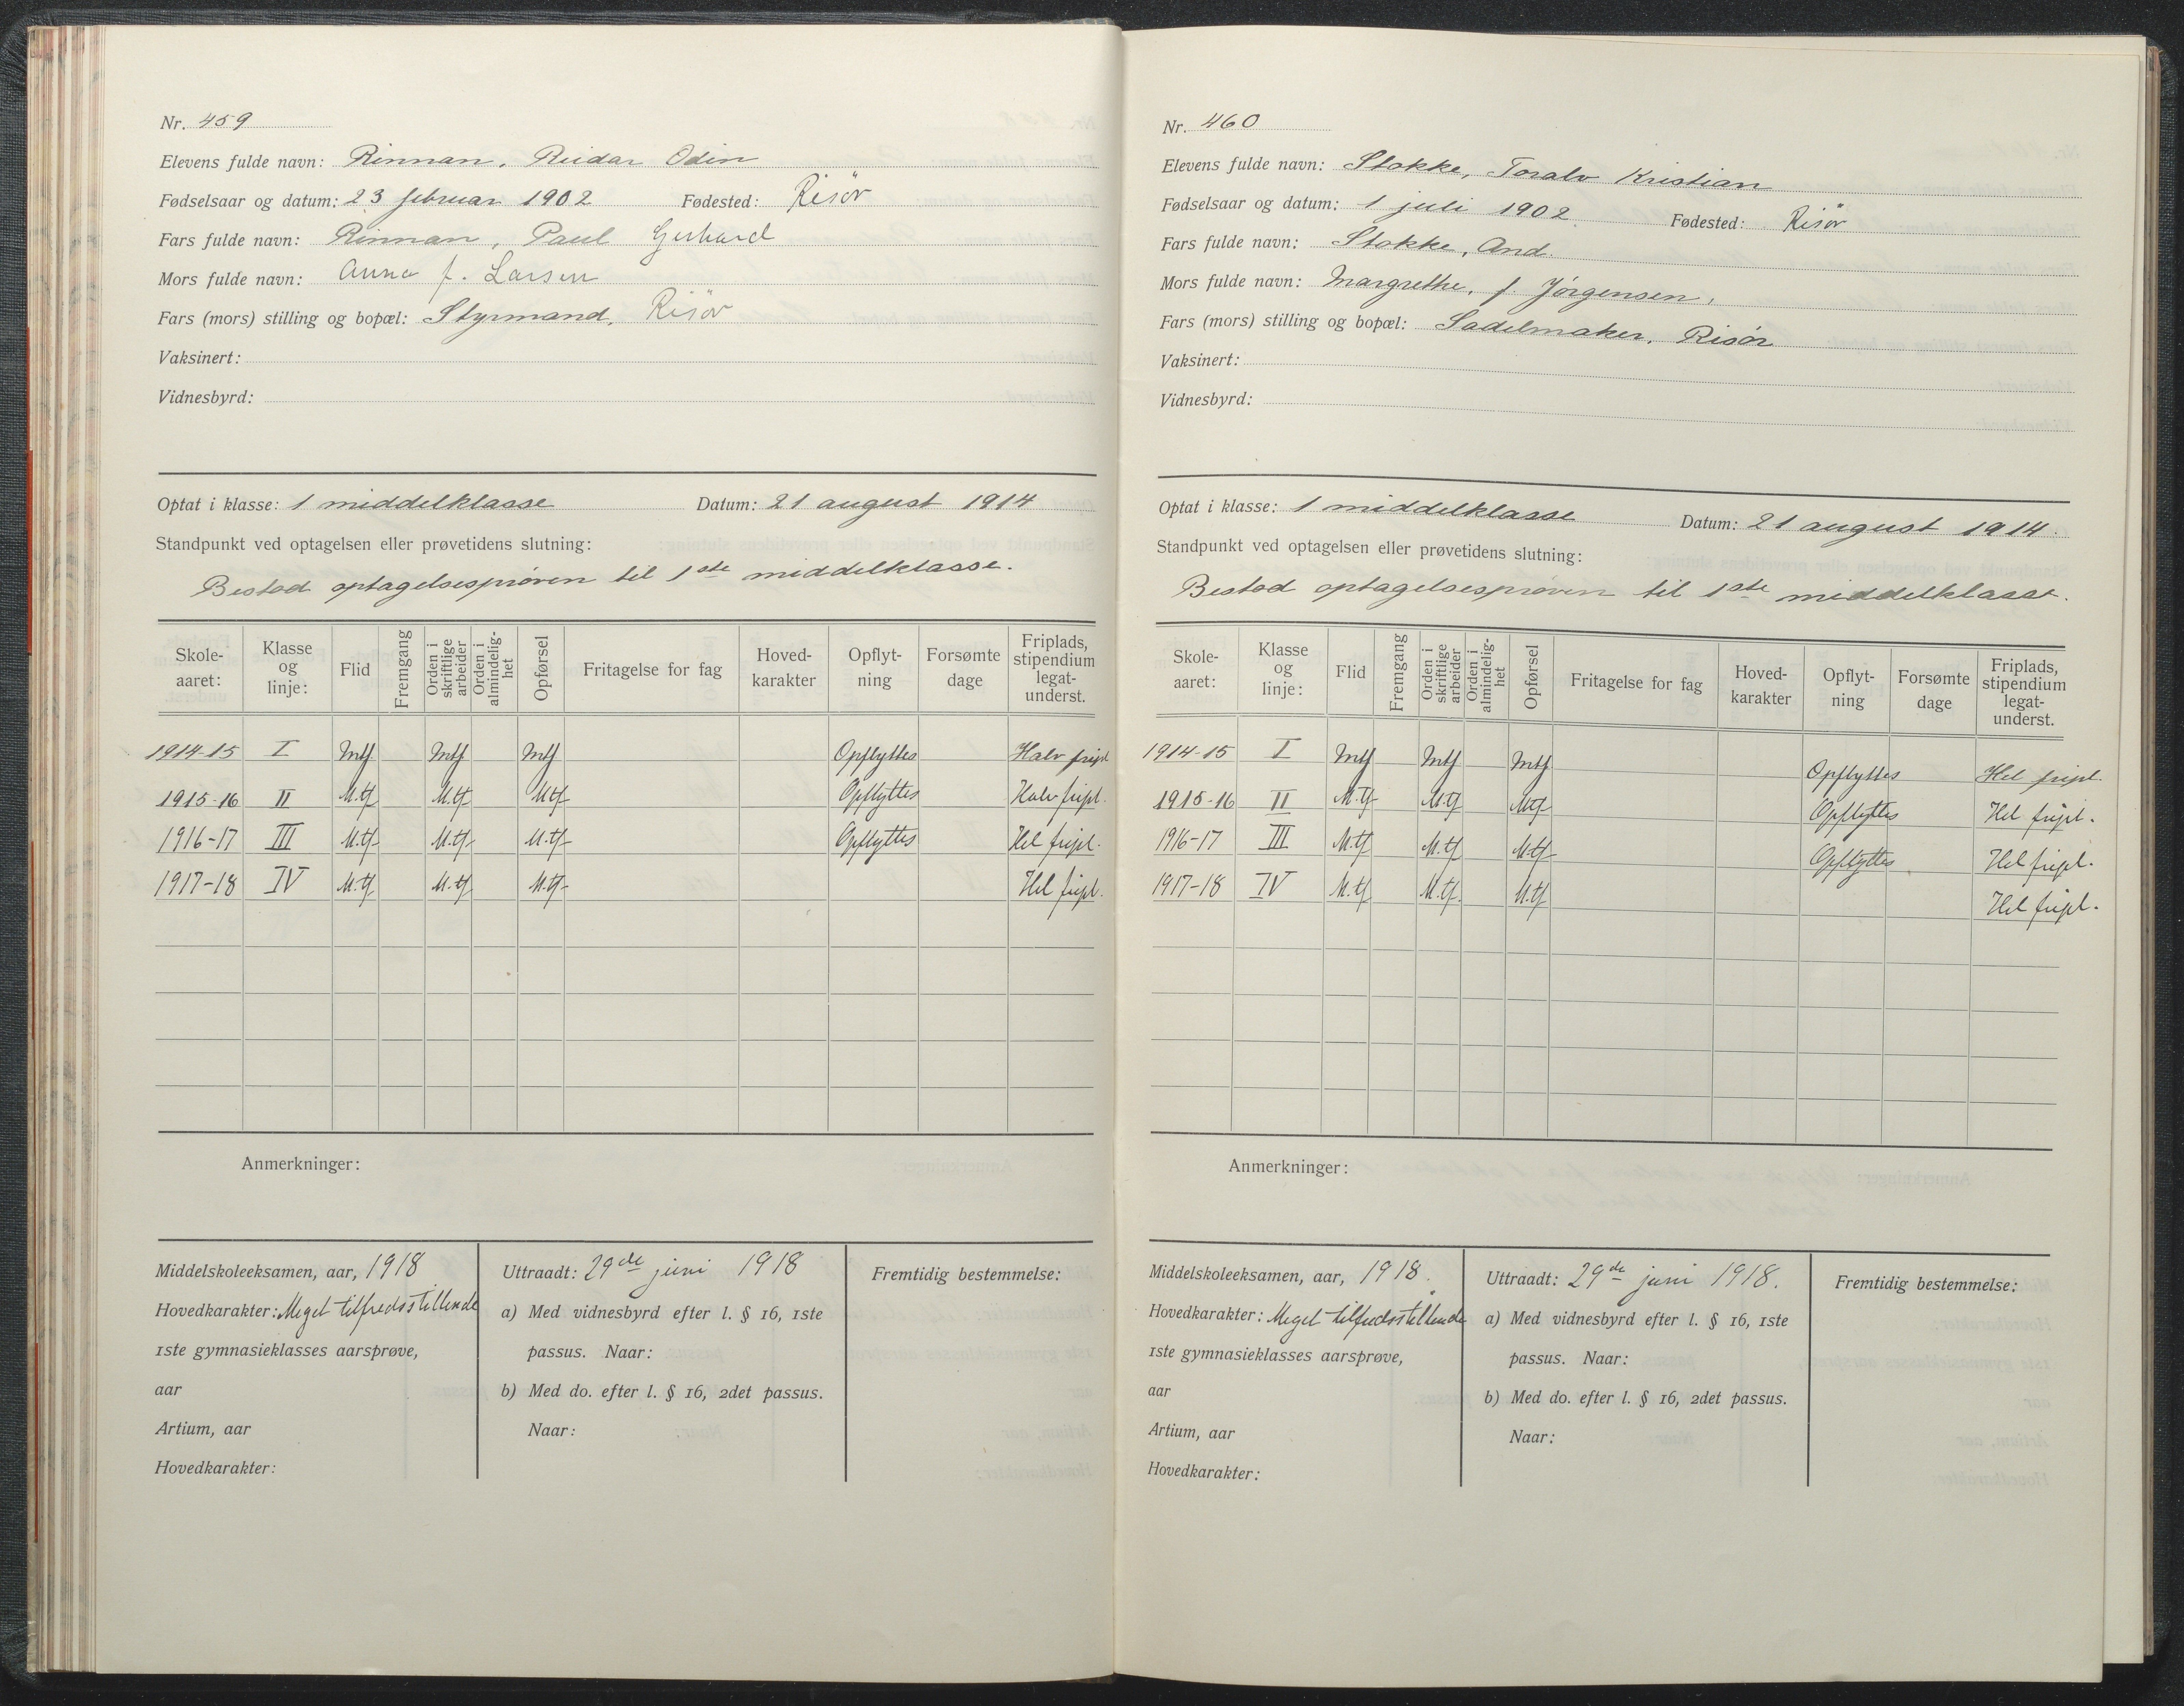 Nr. 459
Elevens fulde navn: Rinnan, Reidar Odin
Fødselsaar og datum: 23 februar 1902 Fødested: Risör
Fars fulde navn: Rinnan, Paul Gerhard
Mors fulde navn: Anna f. Larsen
Fars (mors) stilling og bopæl: Styrmand, Risör
Vaksinert:
Vidnesbyrd:
Optat i klasse: 1 middelklasse Datum: 21 august 1914
Standpunkt ved optagelsen eller prøvetidens slutning:
Bestod optagelsesprøven til 1ste middelklasse.
Skole-aaret: Klasse og linje: Flid Fremgang Orden i skriftlige arbeider Orden i almindelig-het Opførsel Fritagelse for fag Hoved-karakter Opflyt-ning Forsømte dage Friplads, stipendium legat-underst.
1914-15 I Mtf Mtf Mtf Opflyttes Halv fripl
1915-16 II M.tf M.tf M.tf Opflyttes Halv fripl.
1916-17 III M.tf M.tf M.tf Opflyttes Hel fripl.
1917-18 IV M.tf M.tf M.tf Hel fripl.
Anmerkninger:
Middelskoleeksamen, aar, 1918
Hovedkarakter: Meget tilfredsstillende
1ste gymnasieklasses aarsprøve,
aar
Artium, aar
Hovedkarakter:
Uttraadt: 29de juni 1918
a) Med vidnesbyrd efter l. § 16, 1ste
passus. Naar:
b) Med do. efter l. § 16, 2det passus.
Naar:
Fremtidig bestemmelse:
Nr. 460
Elevens fulde navn: Stokke, Toralv Kristian
Fødselsaar og datum: 1 juli 1902 Fødested: Risör
Fars fulde navn: Stokke, And.
Mors fulde navn: Margrethe, f. Jørgensen,
Fars (mors) stilling og bopæl: Sadelmaker, Risör
Vaksinert:
Vidnesbyrd:
Optat i klasse: 1 middelklasse Datum: 21 august 1914.
Standpunkt ved optagelsen eller prøvetidens slutning:
Bestod optagelsesprøven til 1ste middelklasse.
Skole-aaret: Klasse og linje: Flid Fremgang Orden i skriftlige arbeider Orden i almindelig-het Opførsel Fritagelse for fag Hoved-karakter Opflyt-ning Forsømte dage Friplads, stipendium legat-underst.
1914-15 I Mtf Mtf Mtf Opflyttes Hel fripl.
1915-16 II M.tf M.tf M.tf Opflyttes Hel fripl.
1916-17 III M.tf M.tf M.tf Opflyttes Hel fripl.
1917-18 IV M.tf M.tf. M.tf Hel fripl.
Anmerkninger:
Middelskoleeksamen, aar, 1918.
Hovedkarakter: Meget tilfredsstillende
1ste gymnasieklasses aarsprøve,
aar
Artium, aar
Hovedkarakter:
Uttraadt: 29de juni 1918.
a) Med vidnesbyrd efter l. § 16, 1ste
passus. Naar:
b) Med do. efter l. § 16, 2det passus.
Naar:
Fremtidig bestemmelse: